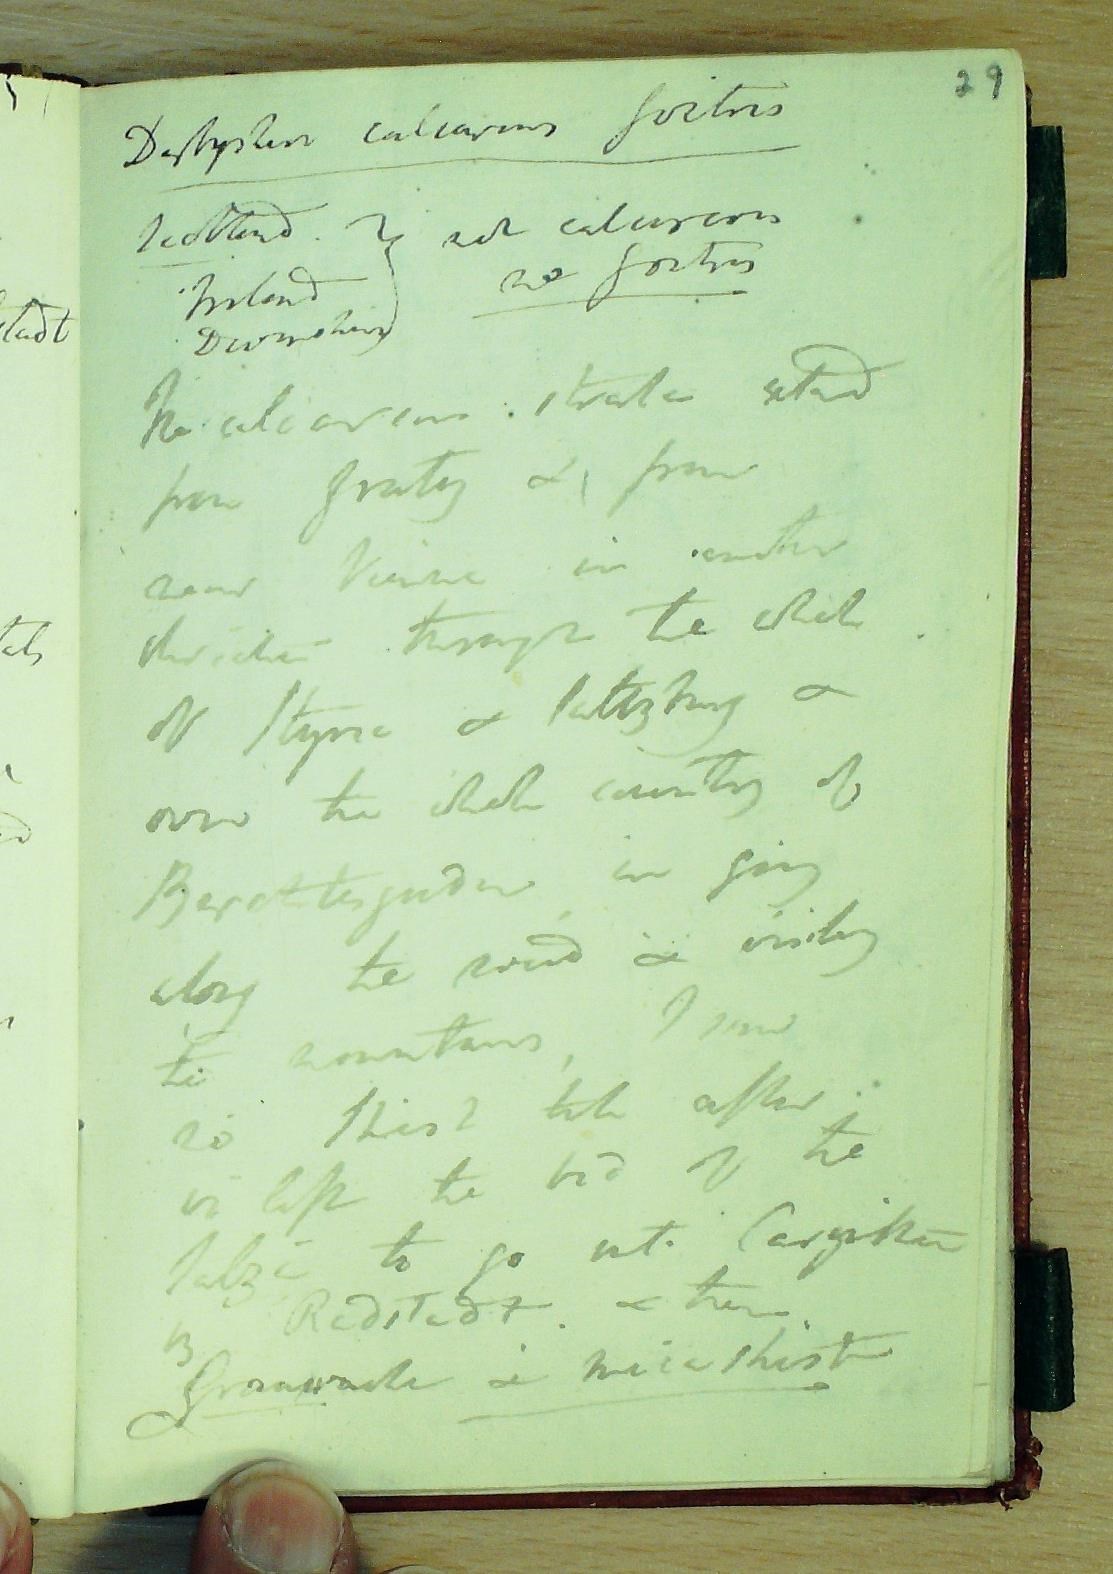 29
Derbyshire calcareous goitres
Scotland } not calcareous
Ireland no goitres
Devonshire
The calcareous strata extend
from Gratz & from
near Vienna in another
direction through the whole
of Styria & Saltzburg &
over the whole country of
Berchtesgaden in going
along the road &
the mountains, I saw
no Shist till after
we left the bed of the
Salza to go into Carynthia
by Radstadt & then
Grauwacke & mica Shist